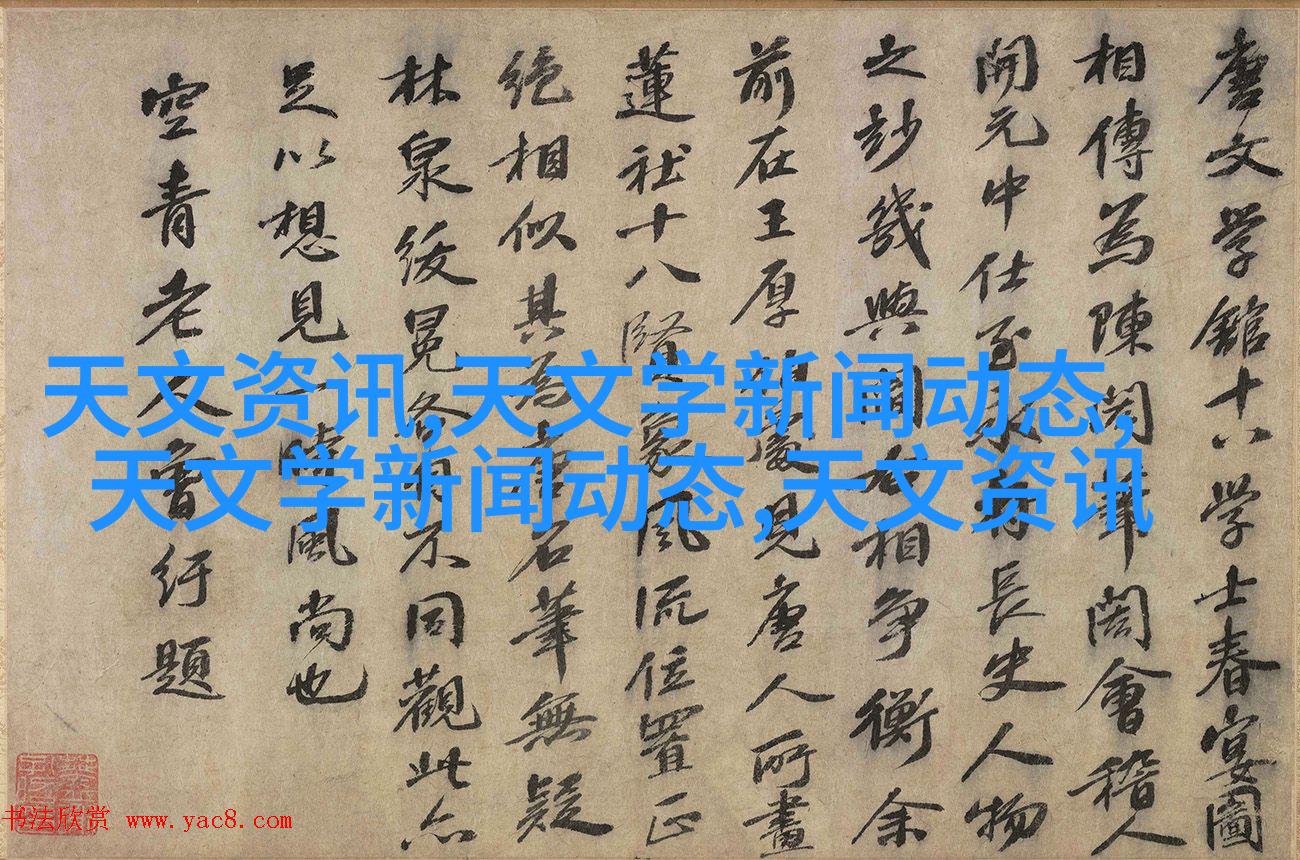 唐文学館十八学士春宴圖
相傳為陳閎筆閎會稽人
開元中仕至長史人物
之妙幾與周相争衡余
前在王厚處見唐人所畫
蓮社十八賢象風流位置正
绝相似其為唐名筆無疑
林泉緌冕各有不同觀此亦
足以想見一時風尚也
空青老人曾紆題
天文资讯,天文学新闻动态,
天文学新闻动态,天文资讯
书法欣赏 www.yac8.com